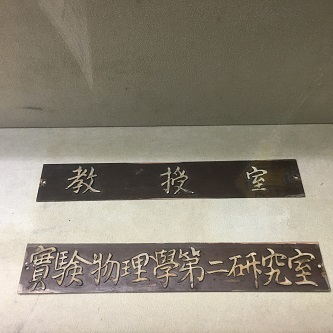 教授室
實驗物理學第二研究室